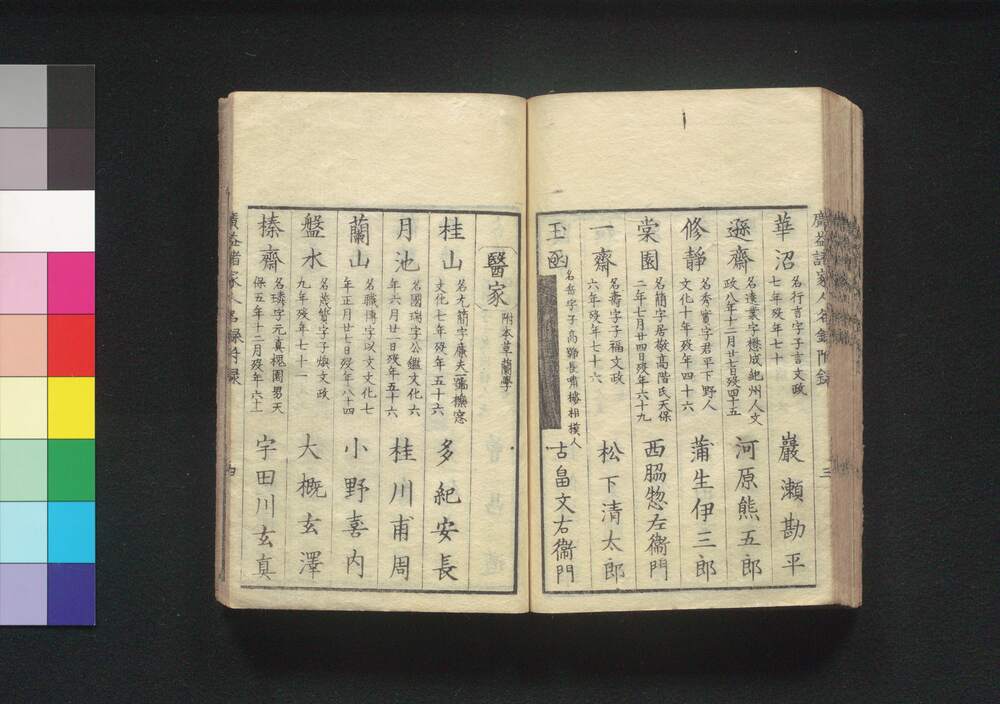 華沼 名行言字子言文政七年歿年七十 巖瀨勘平
遜齋 名達業字懋成紀州人文政八年十二月廿七日歿四十五 河原熊五郎
修靜 名秀實字君平下野人文化十年歿年四十六 蒲生伊三郎
棠園 名簡字居敬高階氏天保二年七月廿四日歿年六十九 西脇惣左衞門
一齋 名壽字子福文政六年歿年七十六 松下清太郎
玉函 名岳字子高號長嘯樓相摸人 古畠文右衞門
廣益諸家人名錄附錄 三
醫家 附本草蘭學
桂山 名元簡字廉夫一號櫟窓文化七年歿年五十六 多紀安長
月池 名國瑞字公鑑文化六年六月廿一日歿年五十六 桂川甫周
蘭山 名職博字以文文化七年正月廿七日歿年八十四 小野喜內
盤水 名茂質字子煥文政九年歿年七十一 大概玄澤
榛齋 名璘字元真槐園男天保五年十二月歿年六十 宇田川玄真
廣益諸家人名錄附錄 四